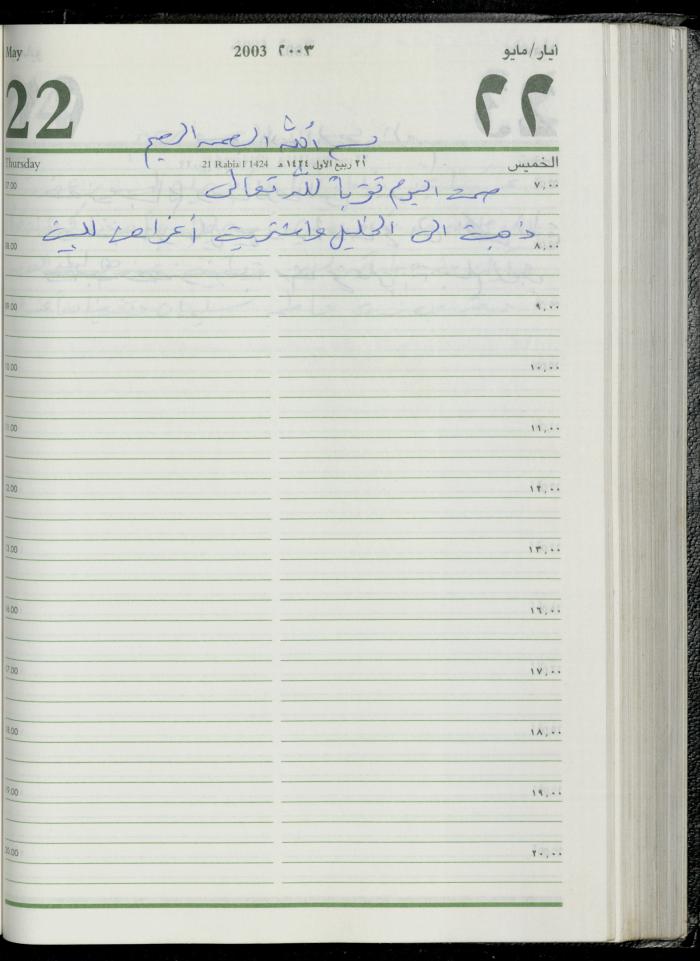 May 2003 ٢٠٠٣ أيار/مايو
22 ٢٢
بسم الله الرحمن الرحيم
Thursday 21 Rabia I 1424 ٢١ ربيع الأول ١٤٢٤ هـ الخميس
07.00 ٧,٠٠
صمت اليوم تقرباً لله تعالى
ذهبت الى الخليل واشتريت أغراض للبيت
08.00 ٨,٠٠
09.00 ٩,٠٠
10.00 ١٠,٠٠
11.00 ١١,٠٠
12.00 ١٢,٠٠
13.00 ١٣,٠٠
16.00 ١٦,٠٠
17.00 ١٧,٠٠
18.00 ١٨,٠٠
19.00 ١٩,٠٠
20.00 ٢٠,٠٠